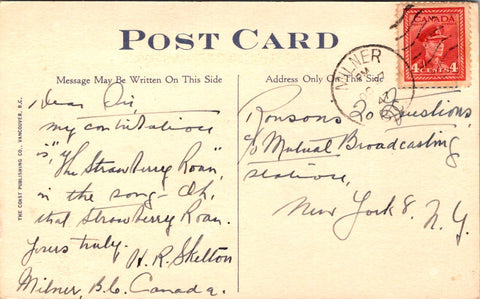 POST CARD
Message May Be Written On This Side
Dear Sir,
my contribution
is, "The Strawberry Roan",
in the song - Oh,
that strawberry Roan.
Yours truly.
H. R. Skelton
Milner, B.C. Canada.
THE COAST PUBLISHING CO., VANCOUVER, B.C.
Address Only On This Side
CANADA
4 CENTS 4
MILNER
PM
Ronsons 20 Questions,
c/o Mutual Broadcasting
station,
New York 8. N.Y.